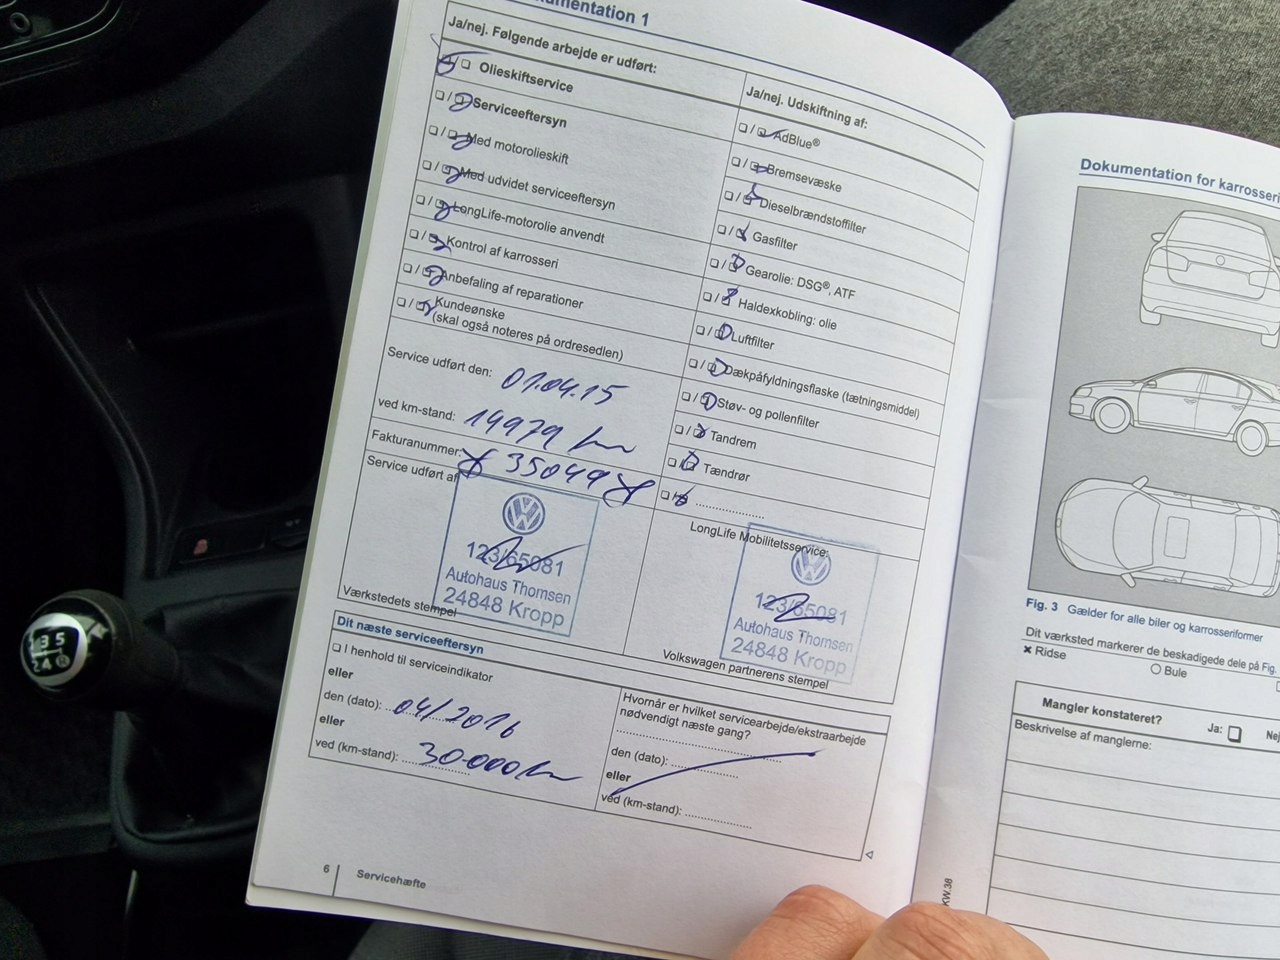 Dokumentation 1
Ja/nej. Følgende arbejde er udført:
Olieskiftservice
Serviceeftersyn
Med motorolieskift
Med udvidet serviceeftersyn
LongLife-motorolie anvendt
Kontrol af karrosseri
Anbefaling af reparationer
Kundeønske
(skal også noteres på ordresedlen)
Service udført den: 01.04.15
ved km-stand: 14979 km
Fakturanummer: 35049
Service udført af
VW
123/65081
Autohaus Thomsen
24848 Kropp
Værkstedets stempel
Ja/nej. Udskiftning af:
AdBlue®
Bremsevæske
Dieselbrændstoffilter
Gasfilter
Gearolie: DSG®, ATF
Haldexkobling: olie
Luftfilter
Dækpåfyldningsflaske (tætningsmiddel)
Støv- og pollenfilter
Tandrem
Tændrør
LongLife Mobilitetsservice:
VW
123/65081
Autohaus Thomsen
24848 Kropp
Volkswagen partnerens stempel
Dit næste serviceeftersyn
I henhold til serviceindikator
eller
den (dato): 04/2016
eller
ved (km-stand): 30.000 km
Hvornår er hvilket servicearbejde/ekstraarbejde
nødvendigt næste gang?
den (dato):
eller
ved (km-stand):
6 Servicehæfte
Dokumentation for karrosseri
Fig. 3 Gælder for alle biler og karrosseriformer
Dit værksted markerer de beskadigede dele på Fig.
Ridse Bule
Mangler konstateret? Ja: Nej
Beskrivelse af manglerne:
KW.38
1 3 5
2 4